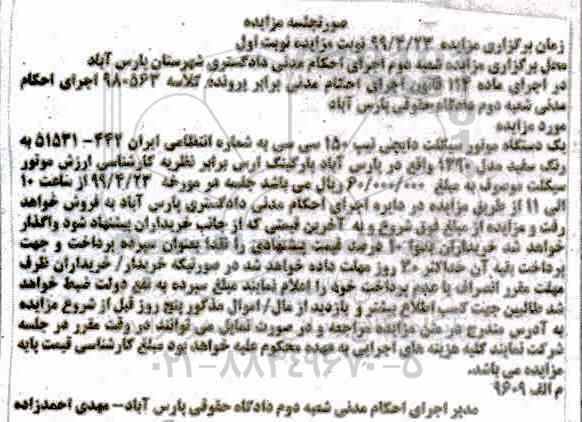 صورتجلسه مزایده
زمان برگزاری مزایده ۹۹/۴/۲۳ نوبت مزایده نوبت اول
محل برگزاری مزایده شعبه دوم اجرای احکام مدنی دادگستری شهرستان پارس آباد
در اجرای ماده ۱۱۴ قانون اجرای احکام مدنی برابر پرونده کلاسه ۹۸۰۵۶۳ اجرای احکام
مدنی شعبه دوم دادگاه حقوقی پارس آباد
مورد مزایده
یک دستگاه موتور سیکلت دایچی تیپ ۱۵۰ سی سی به شماره انتظامی ایران ۴۴۲- ۵۱۵۳۱ به
رنگ سفید مدل ۱۳۹۰ واقع در پارس آباد پارکینگ ارس برابر نظریه کارشناسی ارزش موتور
سیکلت موصوف به مبلغ ۶۰/۰۰۰/۰۰۰ ریال می باشد جلسه در مورخه ۹۹/۴/۲۳ از ساعت ۱۰
الی ۱۱ از طریق مزایده در دایره اجرای احکام مدنی دادگستری پارس آباد به فروش خواهد
رفت و مزایده از مبلغ فوق شروع و به آخرین قیمتی که از جانب خریداران پیشنهاد شود واگذار
خواهد شد خریداران بایها ۱۰ درصد قیمت پیشنهادی را نقدا بعنوان سپرده پرداخت و جهت
پرداخت بقیه آن حداکثر ۳۰ روز مهلت داده خواهد شد در صورتیکه خریدار/ خریداران ظرف
مهلت مقرر انصراف یا عدم پرداخت خود را اعلام نمایند مبلغ سپرده به نفع دولت ضبط خواهد
شد طالبین جهت کسب اطلاع بیشتر و بازدید از مال/ اموال مذکور پنج روز قبل از شروع مزایده
به آدرس مندرج در متن مزایده مراجعه و در صورت تمایل می توانند در وقت مقرر در جلسه
شرکت نمایند کلیه هزینه های اجرایی به عهده محکوم علیه خواهد بود مبلغ کارشناسی قیمت پایه
مزایده می باشد.
م الف ۹۶۰۹
مدیر اجرای احکام مدنی شعبه دوم دادگاه حقوقی پارس آباد- مهدی احمدزاده
۰۲۱-۸۸۳۴۹۶۷۰-۵